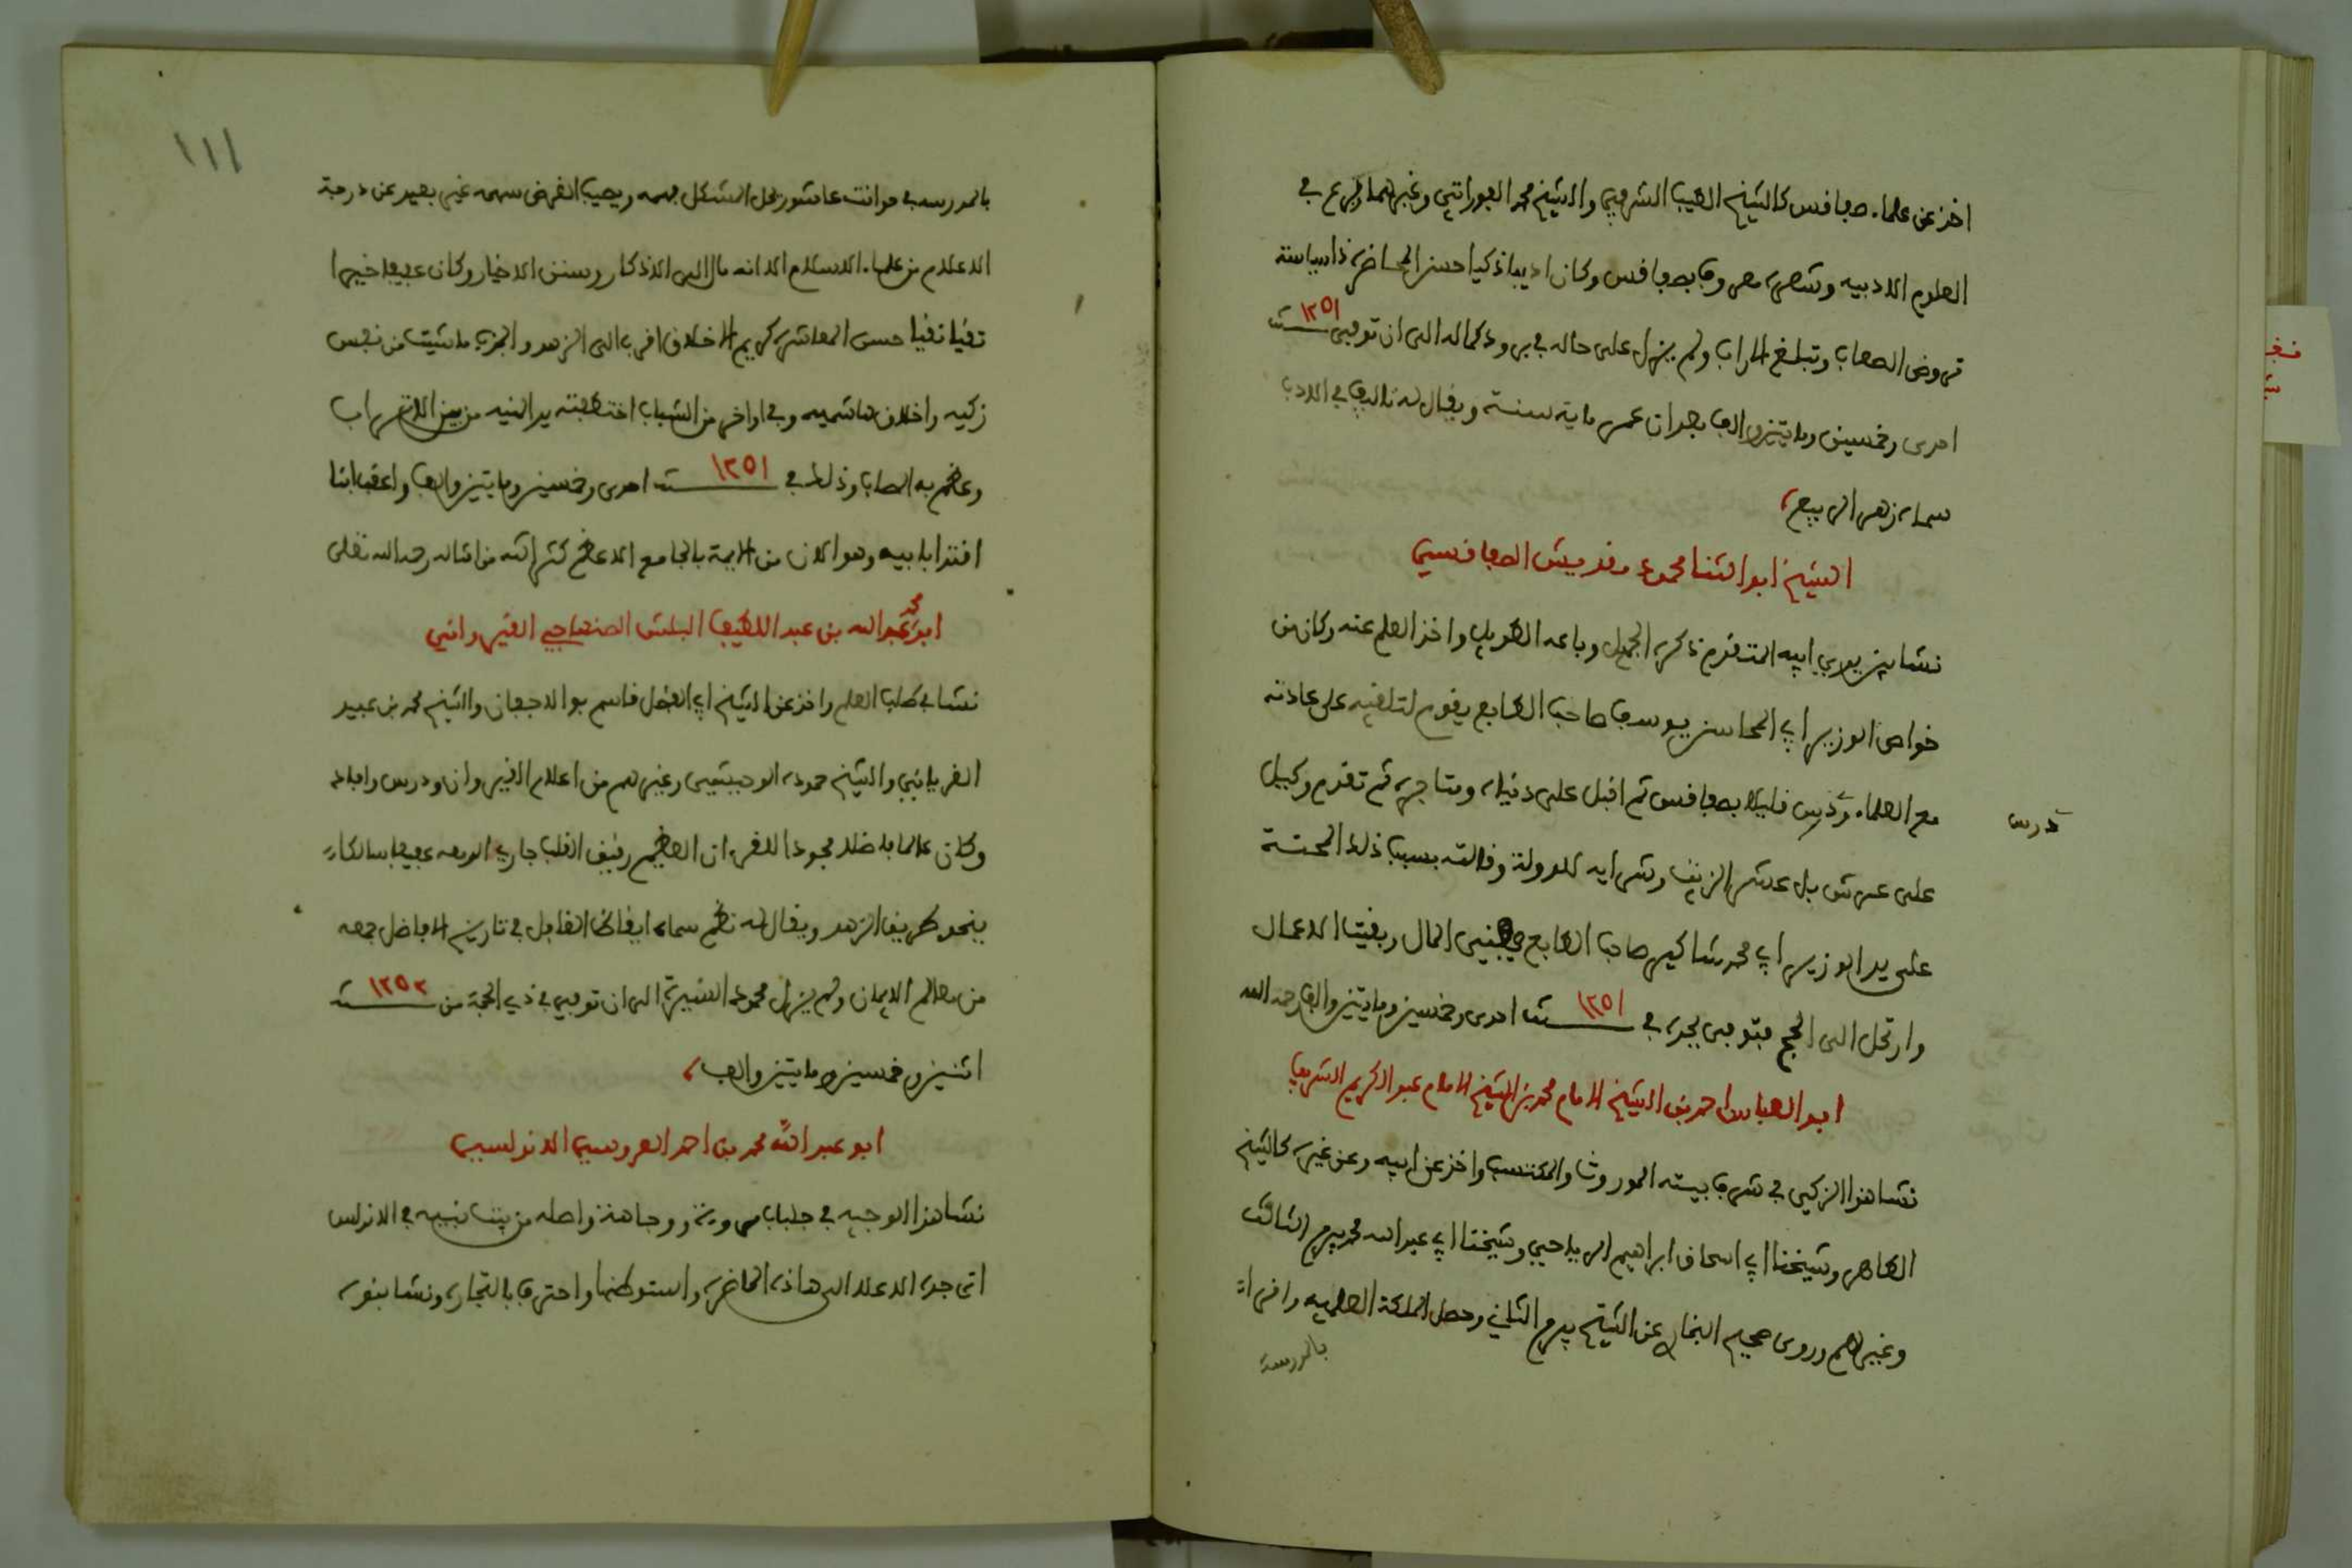 اخذ عن علماء صفاقس كالشيخ الطيب الشرفي والشيخ محمد الفوراتي وغيرهما وبرع في
العلوم الادبيه وشعره معروف بصفاقس وكان اديبا ذكيا حسن المحاضرة ذا سياسة
تروض الصعاب وتبلغ المراب ولم يزل على حاله في برود كماله الى ان توفي سنة ١٢٥١
احدى وخمسين ومايتين والف وجدان عمره ماية سنة ويقال له تاليف في الادب
سماه زهر الربيع
الشيخ ابو الثنا محمود مقديش الصفاقسي
نشا بين يدي ابيه المتقدم ذكره الجميل وباعه الطويل واخذ العلم عنه وكان من
خواص الوزير ابي المحاسن يوسف صاحب الطابع يقوم لتلقيه على عادته
مع العلماء ودرس قليلا بصفاقس ثم اقبل على دنياه ومتاجره ثم تقدم وكيل
درس
على عروش بل عشر الزيت وشرايه للدولة ونالته بسبب ذلك المحنة
على يد الوزير ابي محمد شاكير صاحب الطابع المال وبقيت الاعمال
وارتحل الى الحج فتوفي بجدة في سنة ١٢٥١ احدى وخمسين ومايتين والف رحمه الله
ابو العباس احمد بن الشيخ الامام محمد بن الشيخ الامام عبد الكريم الشريف
نشا هذا الزكي في شرف بيته الموروث والمكتسب واخذ عن ابيه وعن غيره كالشيخ
الطاهر وشيخنا ابي اسحاق ابراهيم الرياحي وشيخنا ابي عبد الله محمد بيرم الثالث
وغيرهم وروى صحيح البخاري عن الشيخ بيرم الثاني وحصل الملكة العلميه واقراة
بالمدرسة
١١١
بالمدرسه في حوانت عاشور يحل المشكل بفهمه ويصيب الغرض بسهمه غير بعيد عن درجة
الاعلام من علماء الاسلام الا انه مال الى الاذكار وسنن الاخيار وكان عفيفا خيرا
تقيا نقيا حسن المعاشرة كريم الاخلاق اقرب الى الزهد والجزب ما شيت من نفس
زكيه واخلاق هاشميه وفي اواخر من الشباب اختطفته يد المنيه من بين الاتراب
وعظم به المصاب وذلك في سنة ١٢٥١ احدى وخمسين ومايتين والف واعقب ابنا
اقتدا بابيه وهو الان من الايمة بالجامع الاعظم كثر الله من امثاله رحمه الله تعلى
ابو عبد الله محمد بن عبد اللطيف البلش الصنهاجي القيرواني
نشا في طلب العلم واخذ عن الشيخ ابي الفضل قاسم بو الاجفان والشيخ محمد بن عبيد
الغرياني والشيخ حموده الوحيشي وغيرهم من اعلام القيروان ودرس وافاد
وكان عالما فاضلا مجودا للقرءان العظيم رقيق القلب جاري الدمعه عفيفا سالكا
ينحو طريق الزهد ويقال له نظم سماه ايقاظ الغافل في تاريخ الافاضل جمعه
من معالم الايمان ولم يزل محمود السيرة الى ان توفي في ذي الحجة من سنة ١٢٥٢
اثنين وخمسين ومايتين والف
ابو عبد الله محمد بن احمد العروسي الاندلسي
نشا هذا الوجيه في جلباب مروءة ووجاهة واصله من بيت نبيه في الاندلس
اتى جده الاعلا الى هاذه الحاضرة واستوطنها واحترف بالتجارة ونشا بنوه